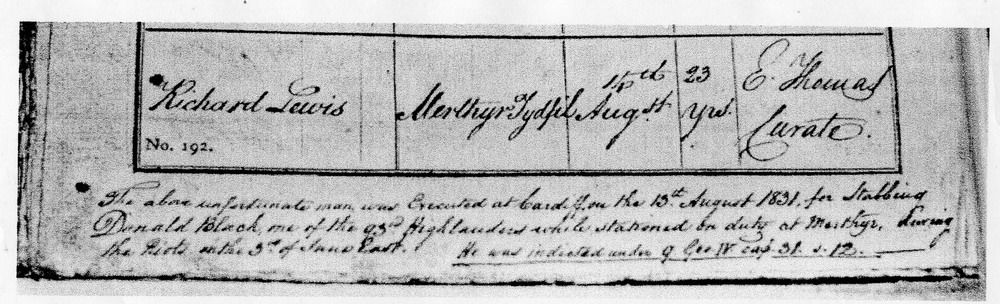 Richard Lewis
No. 192.
Merthyr Tydfil
14th Augst.
23 Yrs.
E. Thomas
Curate.
The above unfortunate man was Executed at Cardiff on the 13th August 1831. for Stabbing
Donald Black, one of the 93rd Highlanders while stationed on duty at Merthyr, during
the Riots on the 3rd of June last. He was indicted under 9 Geo IV cap 31. s. 12.